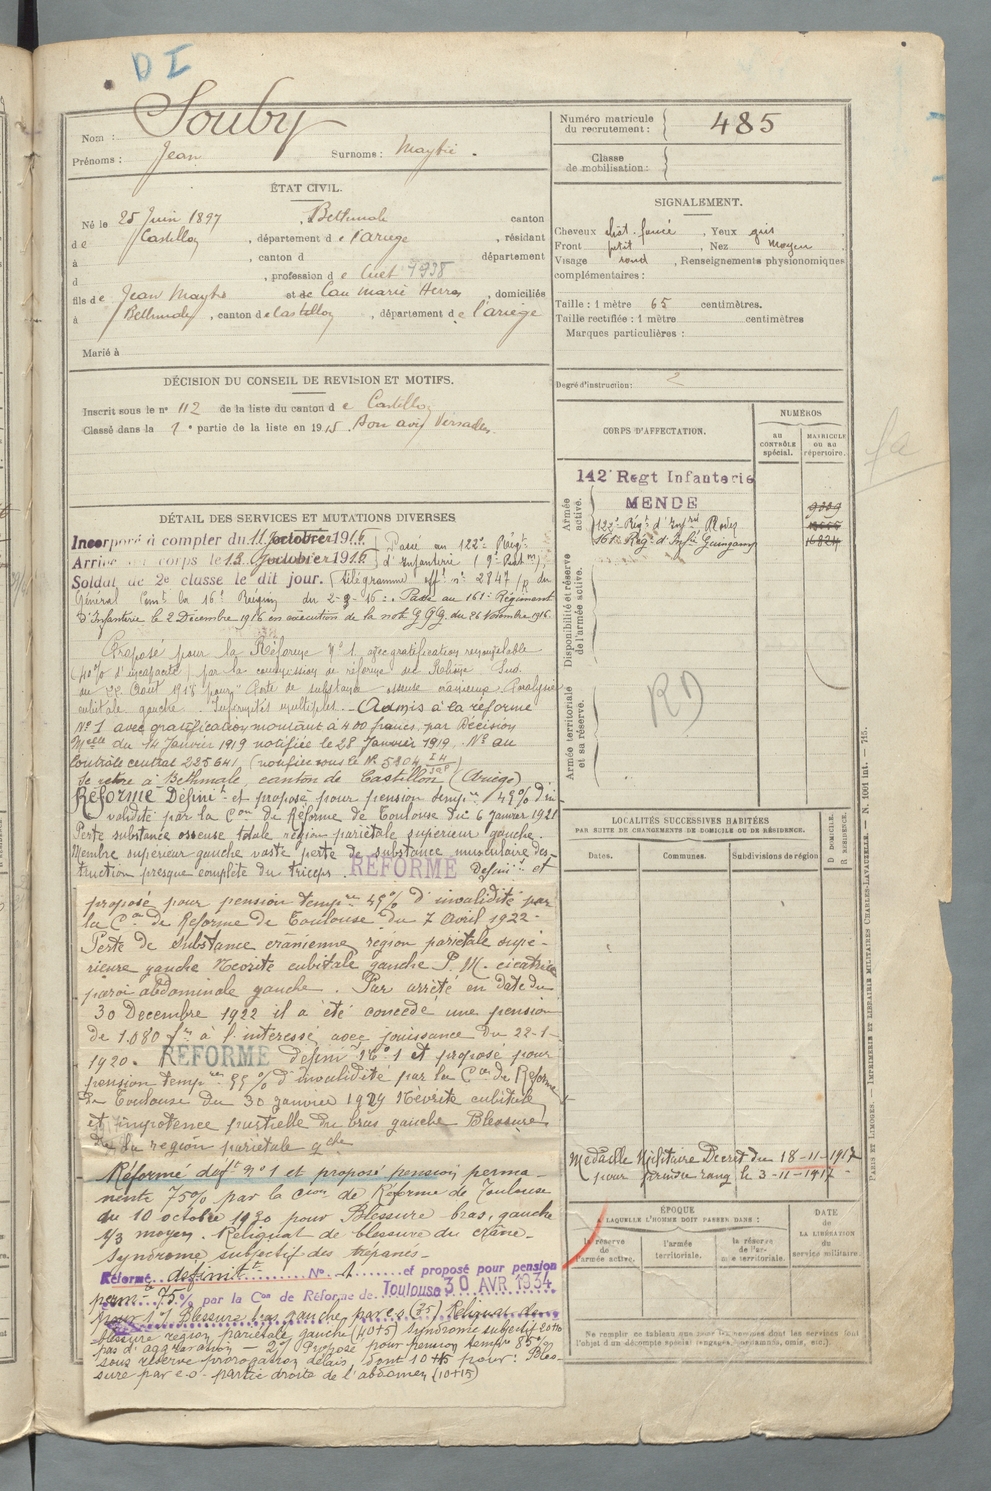 DI
Nom : Souby
Prénoms : Jean Surnoms : Maybié .
Numéro matricule
du recrutement : 485
Classe
de mobilisation :
ÉTAT CIVIL.
Né le 25 Juin 1897 , Bethmale canton
de Castillon , département de l'Ariège , résidant
à , canton d département
d , profession de Cult 7938
fils de Jean Maybié et de Cau Marie , domiciliés
à Bethmale , canton de Castillon , département de l'ariège
Marié à
SIGNALEMENT.
Cheveux chât. foncé , Yeux gris ,
Front petit , Nez moyen ,
Visage rond , Renseignements physionomiques
complémentaires :
Taille : 1 mètre 65 centimètres.
Taille rectifiée : 1 mètre centimètres
Marques particulières :
Degré d'instruction : 2
DÉCISION DU CONSEIL DE REVISION ET MOTIFS.
Inscrit sous le n° 112 de la liste du canton de Castillon
Classé dans la 1e partie de la liste en 1915 . Bon avis Versailles
CORPS D'AFFECTATION.
NUMÉROS
AU CONTRÔLE spécial.
MATRICULE ou au répertoire.
Armée active.
142e Regt Infanterie
MENDE 9309
122e Régt d'Infrie Rodez
161e Régt d'Infie Guingamp 16824
Disponibilité et réserve de l'armée active.
Armée territoriale et sa réserve.
RD
fa
DÉTAIL DES SERVICES ET MUTATIONS DIVERSES
Incorporé à compter du 11 octobre 1916
Arrivé au corps le 13 octobre 1916
Soldat de 2e classe le dit jour.
Passé au 122e Régt
d'Infanterie
(télégramme off. n° 2847 /p du
Général Comt la 16e Région du 2-9-16 : Passé au 161e Régiment
d'Infanterie le 2 Décembre 1916 en exécution de la note G.Q.G. du 26 Novembre 1916.
Proposé pour la Réforme N° 1 avec gratification renouvelable
(40% d'incapacité) par la commission de réforme de
du Août 1918 pour Perte de substance osseuse crânienne Paralysie
cubitale gauche . Infirmités multiples. - Admis à la réforme
N° 1 avec gratification montant à 400 francs, par Décision
Melle du 14 Janvier 1919 notifiée le 28 Janvier 1919. N° au
Contrôle central 225641, (notifiée sous le N° 5804
Se retire à Bethmale canton de Castillon (Ariège)
Réformé Définit et proposé pour pension tempre 45% d'in
validité par la Con de Réforme de Toulouse du 6 Janvier 1921
Perte substance osseuse totale région pariétale supérieur gauche.
Membre supérieur gauche vaste perte de substance musculaire des-
truction presque complète du triceps . RÉFORMÉ Définit et
proposé pour pension tempre 45% d'invalidité par
la Con de Réforme de Toulouse du 7 Avril 1922 -
Perte de substance crânienne région pariétale supé-
rieure gauche Névrite cubitale gauche P. M. cicatrice
paroi abdominale gauche . Par arrêté en date du
30 Décembre 1922 il a été concédé une pension
de 1.080 frs à l'intéressé avec jouissance du 22-1-
1920. RÉFORMÉ défini N° 1 et proposé pour
pension tempre 55% d'invalidité par la Con de Réforme
de Toulouse du 30 janvier 1929 Névrite cubitale
et impotence partielle du bras gauche Blessure
de la région pariétale gche
Réformé deft n° 1 et proposé pension perma-
nente 75% par la Cion de Réforme de Toulouse
du 10 octobre 1930 pour Blessure bras, gauche
1/3 moyen. Reliquat de blessure du crâne.
Syndrome subjectif des trépanés -
Réformé définitt N° 1 et proposé pour pension
perm. 75% par la Con de Réforme de Toulouse 30 AVR 1934
pour 1°) Blessure bras gauche par e.o (35) Reliquat de
blessure région pariétale gauche (40+5) Syndrome subjectif 20+10
pas d'aggravation - 2°) Proposé pour pension tempre 85%
sous réserve prorogation délais, dont 10+15 pour : Bles-
sure par e.o. partie droite de l'abdomen (10+15)
LOCALITÉS SUCCESSIVES HABITÉES
PAR SUITE DE CHANGEMENTS DE DOMICILE OU DE RÉSIDENCE.
Dates. Communes. Subdivisions de région
D DOMICILE.
R RÉSIDENCE.
Médaille Militaire Décret du 18-11-1917
pour prendre rang le 3-11-1917
ÉPOQUE
A LAQUELLE L'HOMME DOIT PASSER DANS :
la réserve de l'armée active.
l'armée territoriale.
la réserve de l'armée territoriale.
DATE
DE LA LIBÉRATION
du service militaire.
Ne remplir ce tableau que pour les hommes dont les services font
l'objet d'un décompte spécial (engagés, condamnés, omis, etc.).
PARIS ET LIMOGES. — IMPRIMERIE ET LIBRAIRIE MILITAIRES CHARLES-LAVAUZELLE. — N. 1001 int. — 715.